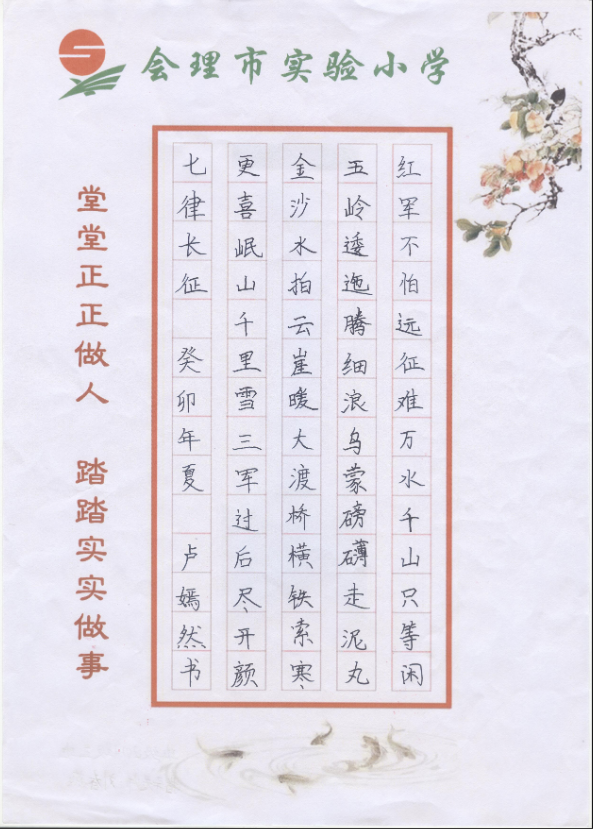 会理市实验小学
红军不怕远征难万水千山只等闲
五岭逶迤腾细浪乌蒙磅礴走泥丸
金沙水拍云崖暖大渡桥横铁索寒
更喜岷山千里雪三军过后尽开颜
七律长征 癸卯年夏 卢嫣然书
堂堂正正做人 踏踏实实做事